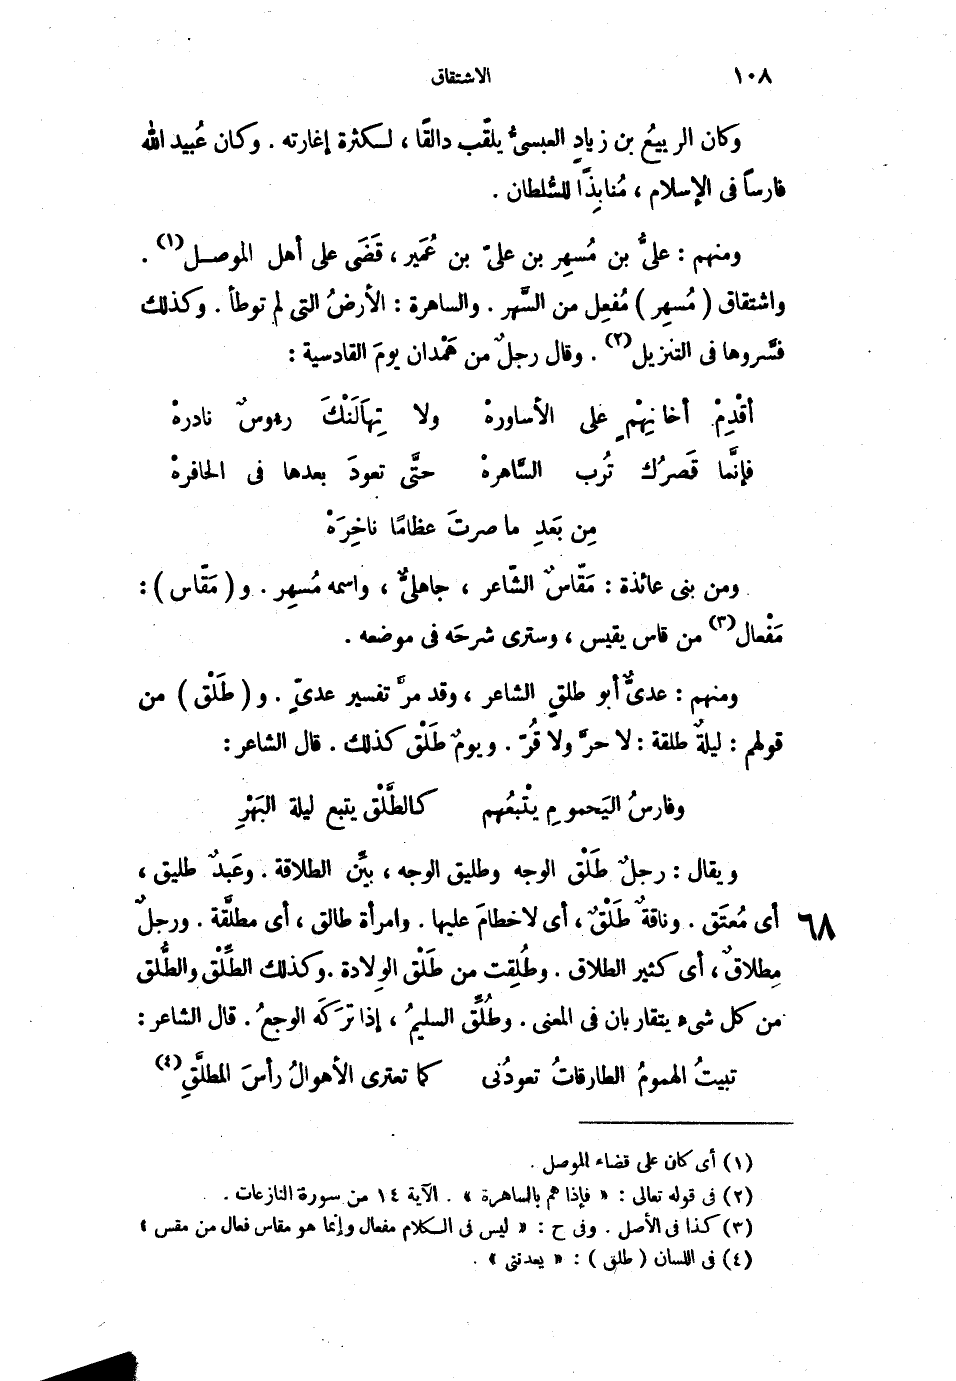 ١٠٨ الاشتقاق
وكان الربيعُ بن زيادٍ العبسىُّ يلقَّب دالقًا ، لكثرة إغارته . وكان عُبيد الله
فارساً فى الإسلام ، مُنابِذًا للسُّلطان .
ومنهم : علىُّ بن مُسهِر بن علىّ بن عُمَير ، قَضَى على أهل الموصل(١) .
واشتقاق ( مُسهِر ) مُفعِل من السَّهر . والساهرة : الأرضُ التى لم توطأ . وكذلك
فسَّروها فى التنزيل(٢) . وقال رجلٌ من هَمْدان يومَ القادسية :
أقْدِمْ أخا نِهْمٍ على الأساورهْ ولا تِهَالَنْكَ رءوسٌ نادرهْ
فإنَّما قَصرُك تُرب السَّاهرهْ حتَّى تعودَ بعدها فى الحافرهْ
مِن بَعَدِ ما صرتَ عظامًا ناخِرَهْ
ومن بنى عائذة : مَقَّاسٌ الشّاعر ، جاهلىٌّ ، واسمه مُسهِر . و ( مَقّاس ) :
مَفْعال(٣) من قاس يقيس ، وسترى شرحَه فى موضعه .
ومنهم : عدىٌّ أبو طلقٍ الشاعر ، وقد مرَّ تفسير عدىٍّ . و ( طَلْق ) من
قولهم : ليلةٌ طلقة : لا حرَّ ولا قُرّ . ويومٌ طَلْق كذلك . قال الشاعر :
وفارسُ اليَحمومِ يتْبعُهم كالطَّلْق يتبع ليلة البَهْرِ
ويقال : رجلٌ طَلْق الوجه وطليق الوجه ، بيِّن الطلاقة . وعَبدٌ طليق ،
أى مُعتَق . وناقةٌ طَلْقٌ ، أى لاخطامَ عليها . وامرأة طالق ، أى مطلَّقة . ورجلٌ ٦٨
مِطلاقٌ ، أى كثير الطلاق . وطُلِقت من طَلْق الوِلادة . وكذلك الطِّلْق والطُّلق
من كل شىء يتقاربان فى المعنى . وطُلِّق السليمُ ، إذا ترَكَه الوجعُ . قال الشاعر :
تبيتُ الهمومُ الطارقاتُ تعودُنى كما تعترى الأهوالُ رأسَ المطلَّقِ(٤)
(١) أى كان على قضاء الموصل .
(٢) فى قوله تعالى : « فإذا هم بالساهرة » . الآية ١٤ من سورة النازعات .
(٣) كذا فى الأصل . وفى ح : « ليس فى الكلام مفعال وإنما هو مقاس فعال من مقس »
(٤) فى اللسان ( طلق ) : « يعدننى » .